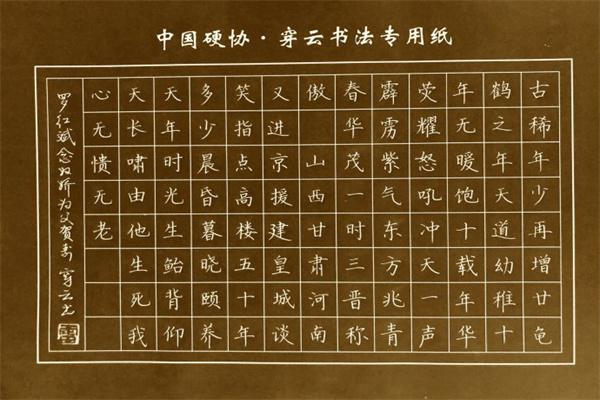 中国硬协·穿云书法专用纸
古稀年少再增廿龟
鹤之年天道幼稚十
年无暖饱十载年华
荧耀怒吼冲天一声
霹雳紫气东方兆青
春华茂一时三晋称
傲 山西甘肃河南
又进京援建皇城谈
笑指点高楼五十年
多少晨昏暮晓颐养
天年时光生鲐背仰
天长啸由他生死我
心无愦无老
罗红斌念如娇为父贺寿 穿云书